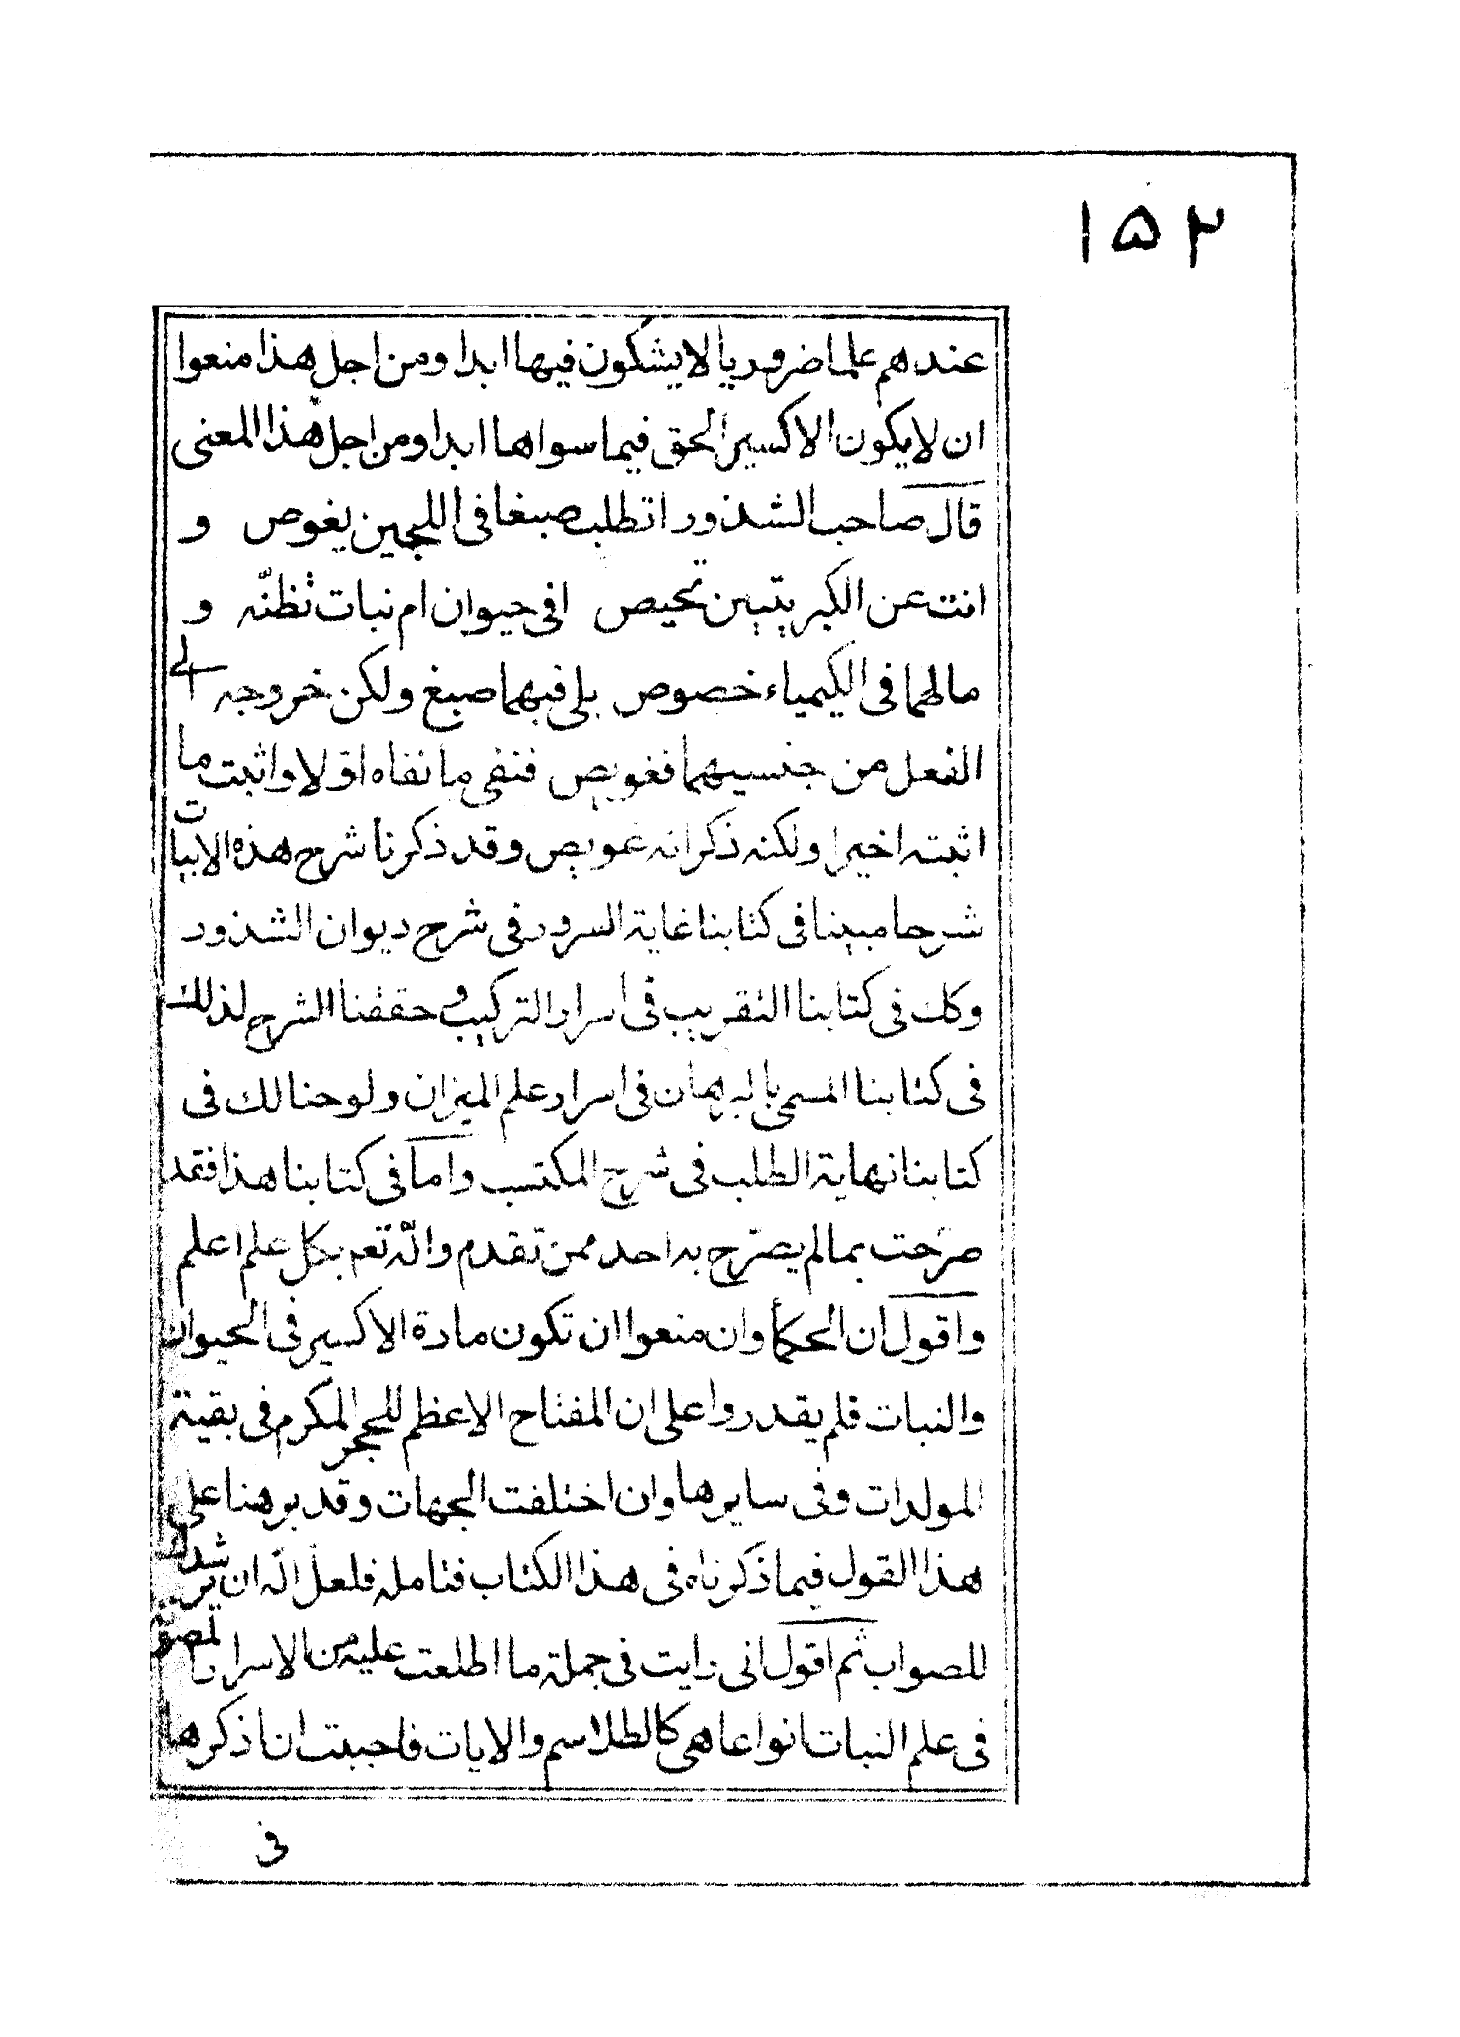 ١٥٢
عندهم علما ضروريا لا يشكون فيها ابدا ومن اجل هذا منعوا
ان لا يكون الاكسير الحق فيما سواها ابدا ومن اجل هذا المعنى
قال صاحب الشذور اتطلب صبغا فى اللجين يغوص و
انت عن الكبريتيين تحيص افى حيوان ام نبات تظنّه و
ما لهما فى الكيمياء خصوص بلى فيهما صبغ ولكن خروجه الى
الفعل من جنسيهما فعويص فنفى ما نفاه اوّلا واثبت ما
اثبته اخيرا ولكنه ذكر انه عويص وقد ذكرنا شرح هذه الابيات
شرحا مبينا فى كتابنا غاية السرور فى شرح ديوان الشذور
وكك فى كتابنا التقريب فى اسرار التركيب وحققنا الشرح لذلك
فى كتابنا المسمى بالبرهان فى اسرار علم الميزان ولوحنا لك فى
كتابنا نهاية الطلب فى شرح المكتسب واما فى كتابنا هذا فقد
صرّحت بما لم يصرّح به احد ممن تقدم واللّه تعم بكل علم اعلم
واقول ان الحكمأ وان منعوا ان تكون مادة الاكسير فى الحيوان
والنبات فلم يقدروا على ان المفتاح الاعظم للحجر المكرم فى بقية
المولدات وفى سايرها وان اختلفت الجهات وقد برهنا على
هذا القول فيما ذكرناه فى هذا الكتاب فتامله فلعل اللّه ان يرشدك
للصواب ثم اقول انى رايت فى جملة ما اطلعت عليه من الاسرار
فى علم النبات انواعا هى كالطلاسم والايات فاحببت ان اذكرها
فى